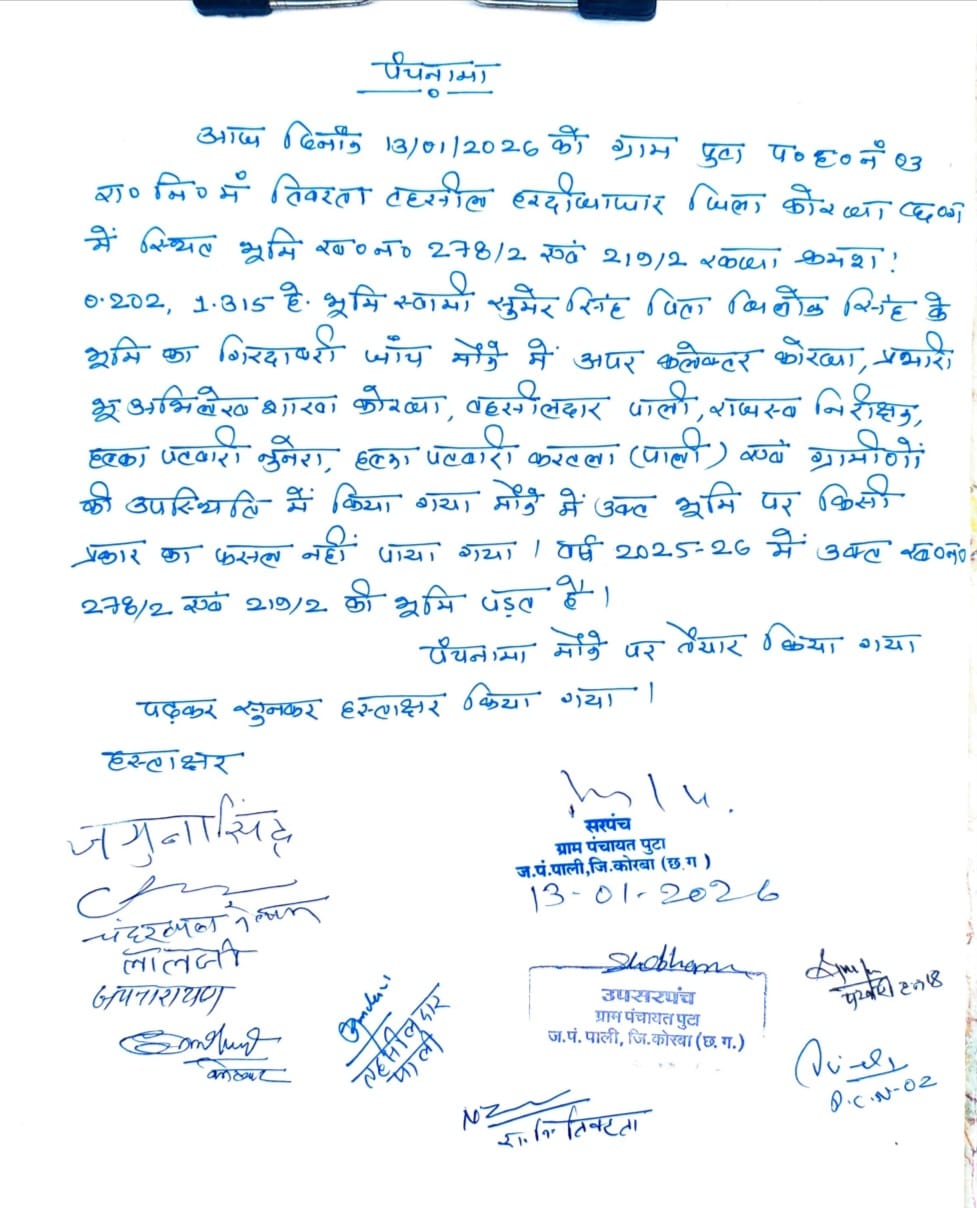 पंचनामा
आज दिनाँक 13/01/2026 को ग्राम पुटा प०ह०नं 03
रा० नि० मं तिवरता तहसील हरदीबाजार जिला कोरबा छ०ग०
में स्थित भूमि ख०न० 278/2 एवं 219/2 रकबा क्रमश:
0.202, 1.315 हे. भूमि स्वामी सुमेर सिंह पिता सिंह के
भूमि का गिरदावरी जाँच मौके में अपर कलेक्टर कोरबा, प्रभारी
भू अभिलेख शाखा कोरबा, तहसीलदार पाली, राजस्व निरीक्षक,
हल्का पटवारी नुनेरा, हल्का पटवारी करतला (पाली) एवं ग्रामीणों
की उपस्थिति में किया गया मौके में उक्त भूमि पर किसी
प्रकार का फसल नहीं पाया गया । वर्ष 2025-26 में उक्त ख०न०
278/2 एवं 219/2 की भूमि पड़त है।
पंचनामा मौके पर तैयार किया गया
पढ़कर सुनकर हस्ताक्षर किया गया ।
हस्ताक्षर
जमुनासिंह
लालजी
जयनारायण
कोटवार
तहसीलदार
पाली
सरपंच
ग्राम पंचायत पुटा
ज.पं.पाली,जि.कोरबा (छ.ग )
13-01-2026
Shubham
उपसरपंच
ग्राम पंचायत पुटा
ज.पं. पाली, जि.कोरबा (छ.ग.)
रा.नि. तिवरता
P.C.N-02